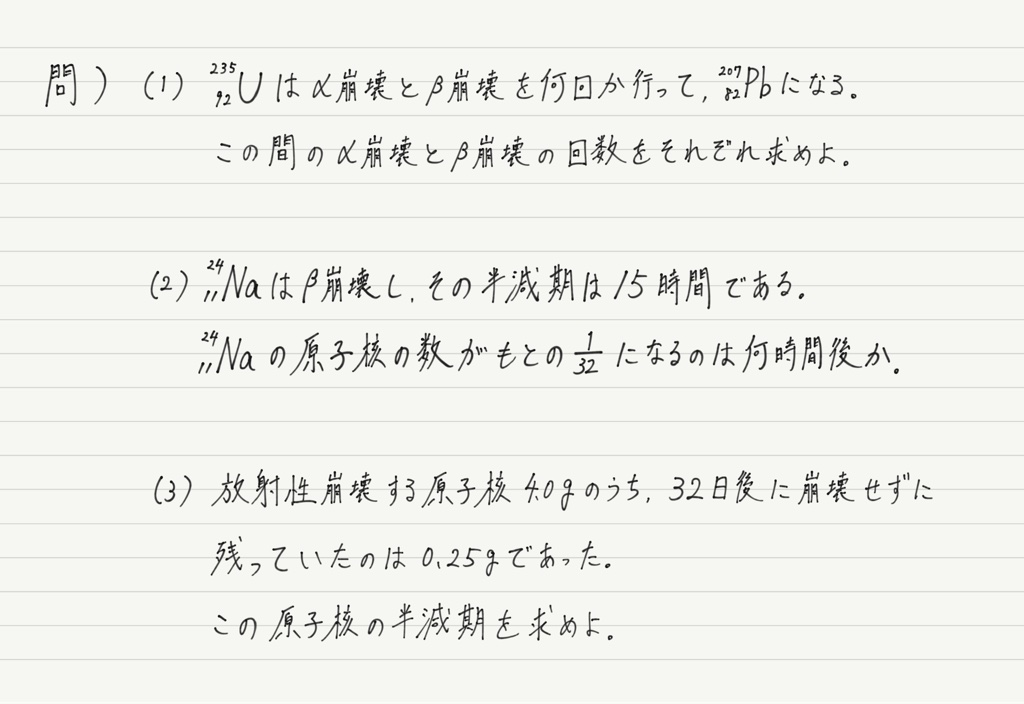 問) (1) ²³⁵₉₂Uはα崩壊とβ崩壊を何回か行って, ²⁰⁷₈₂Pbになる。
この間のα崩壊とβ崩壊の回数をそれぞれ求めよ。
(2) ²⁴₁₁Naはβ崩壊し, その半減期は15時間である。
²⁴₁₁Naの原子核の数がもとの1/32になるのは何時間後か。
(3) 放射性崩壊する原子核4.0gのうち, 32日後に崩壊せずに
残っていたのは0.25gであった。
この原子核の半減期を求めよ。